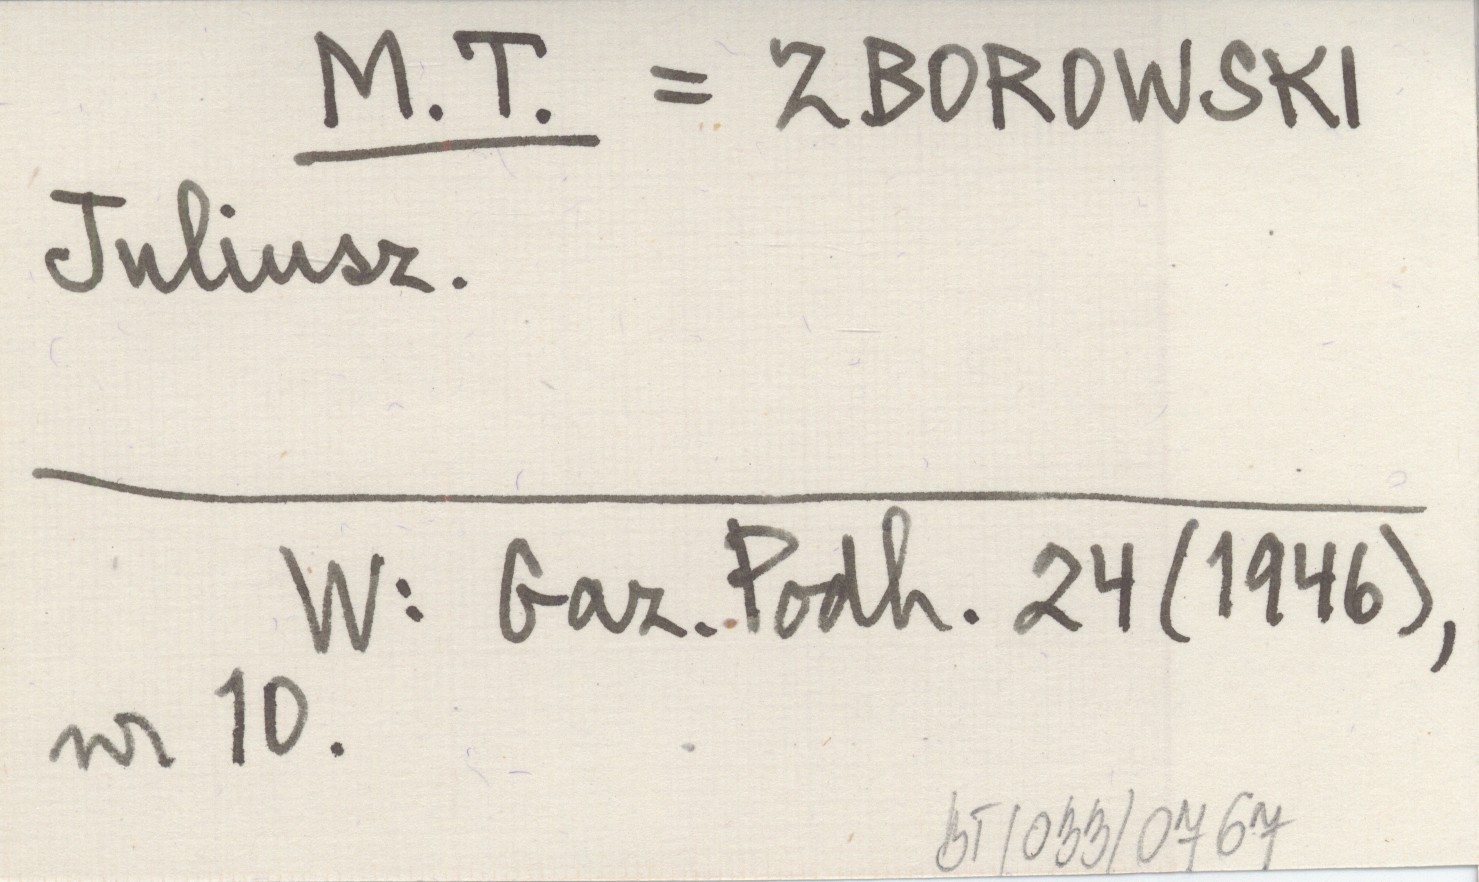 M.T. = ZBOROWSKI
Juliusz.
W: Gaz. Podh. 24 (1946),
nr 10.
BT/033/0767